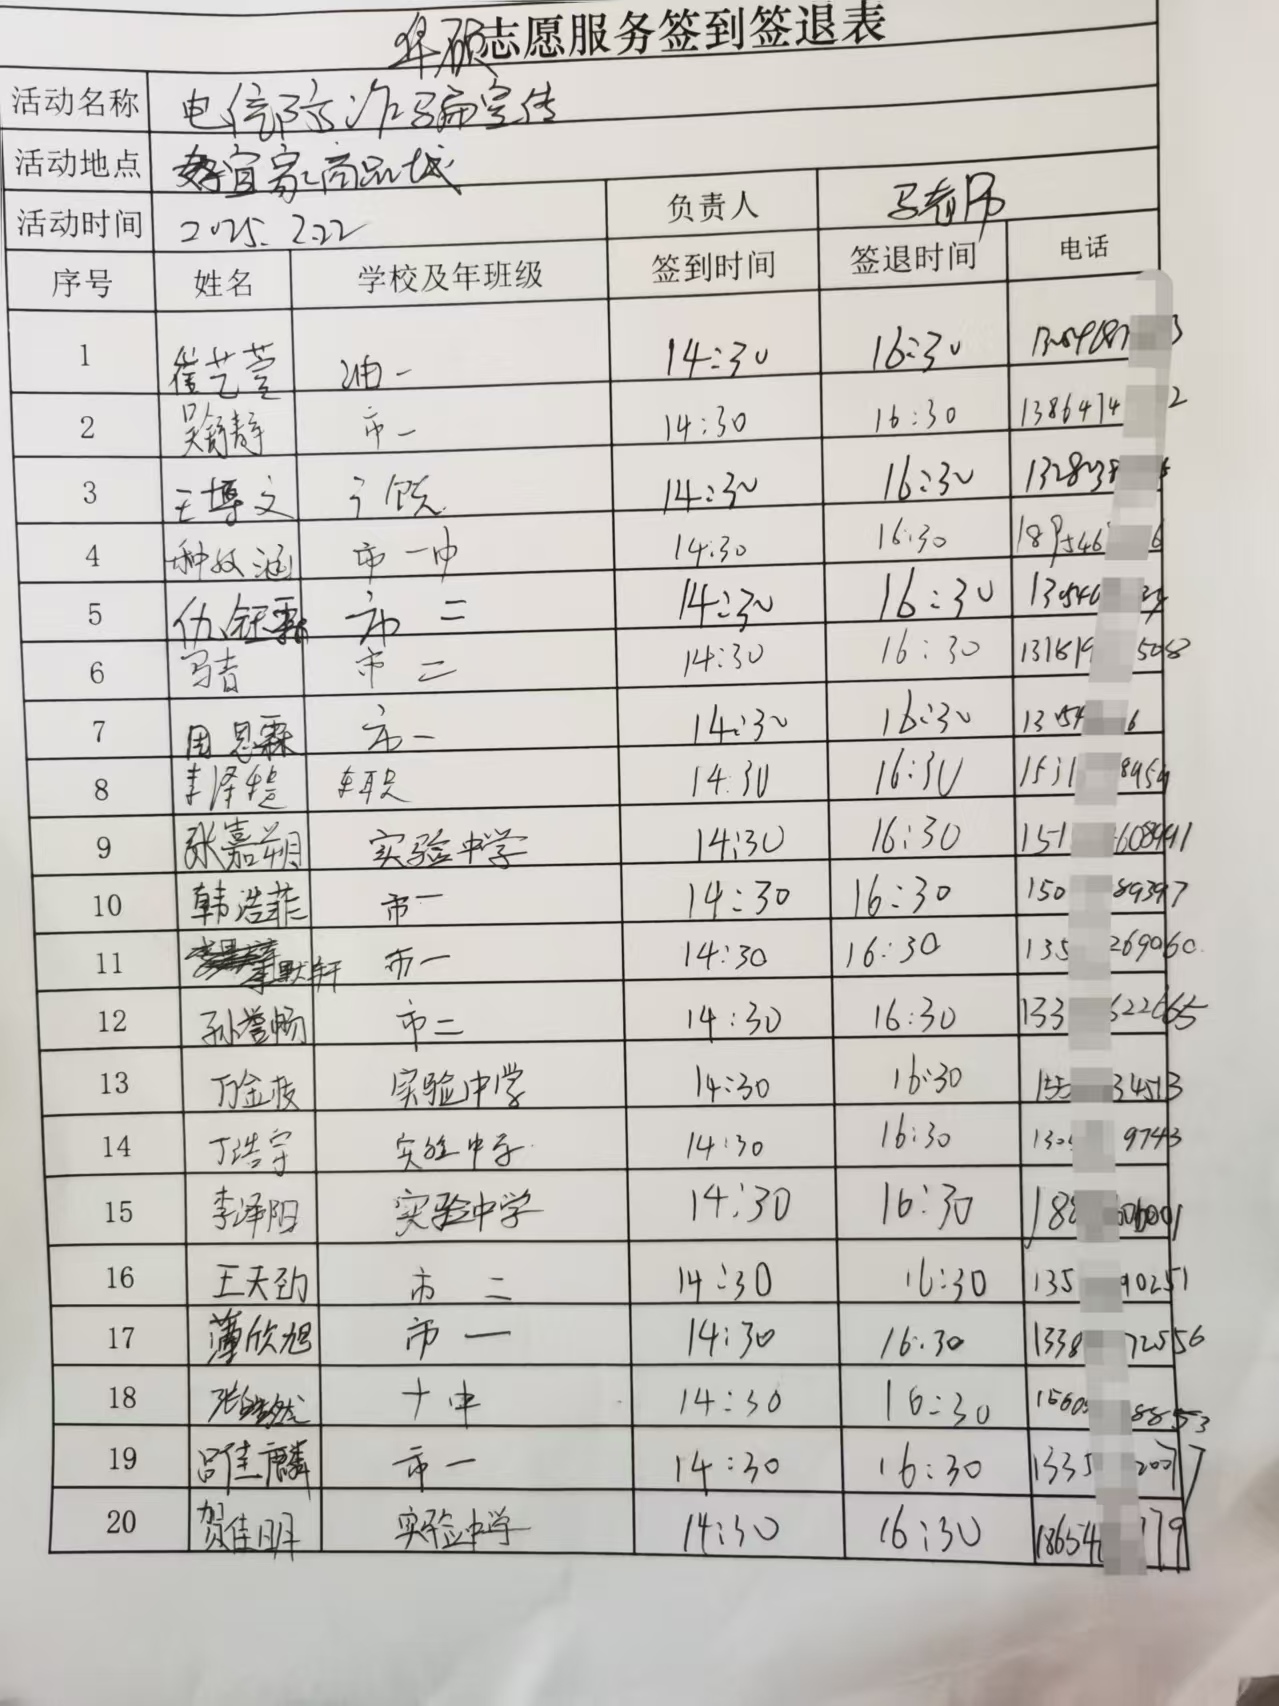 华硕志愿服务签到签退表
活动名称 电信防诈骗宣传
活动地点 好宜家商品城
活动时间 2025.2.22 负责人 马老师
序号 姓名 学校及年班级 签到时间 签退时间 电话
1 崔艺萱 油一 14:30 16:30
2 吴舒静 市一 14:30 16:30 1386474 2
3 王博文 14:30 16:30
4 种奴涵 市一中 14:30 16:30 189546 6
5 仇钰霖 市二 14:30 16:30
6 马青 市二 14:30 16:30 508
7 周恩霖 市一 14:30 16:30 13054 6
8 李泽楷 东职 14:30 16:30 1531 8959
9 张嘉朔 实验中学 14:30 16:30 151 608441
10 韩浩菲 市一 14:30 16:30 150 89397
11 李默轩 市一 14:30 16:30 135 269060
12 孙誉畅 市二 14:30 16:30 133 622665
13 万金枝 实验中学 14:30 16:30 155 34513
14 丁浩宇 实验中学 14:30 16:30 130 9743
15 李泽阳 实验中学 14:30 16:30 188 06001
16 王天劲 市二 14:30 16:30 135 90251
17 薄欣旭 市一 14:30 16:30 1338 72556
18 张皓然 十中 14:30 16:30 15605 88553
19 吕佳麟 市一 14:30 16:30 1335 20077
20 贺佳明 实验中学 14:30 16:30 18654 179